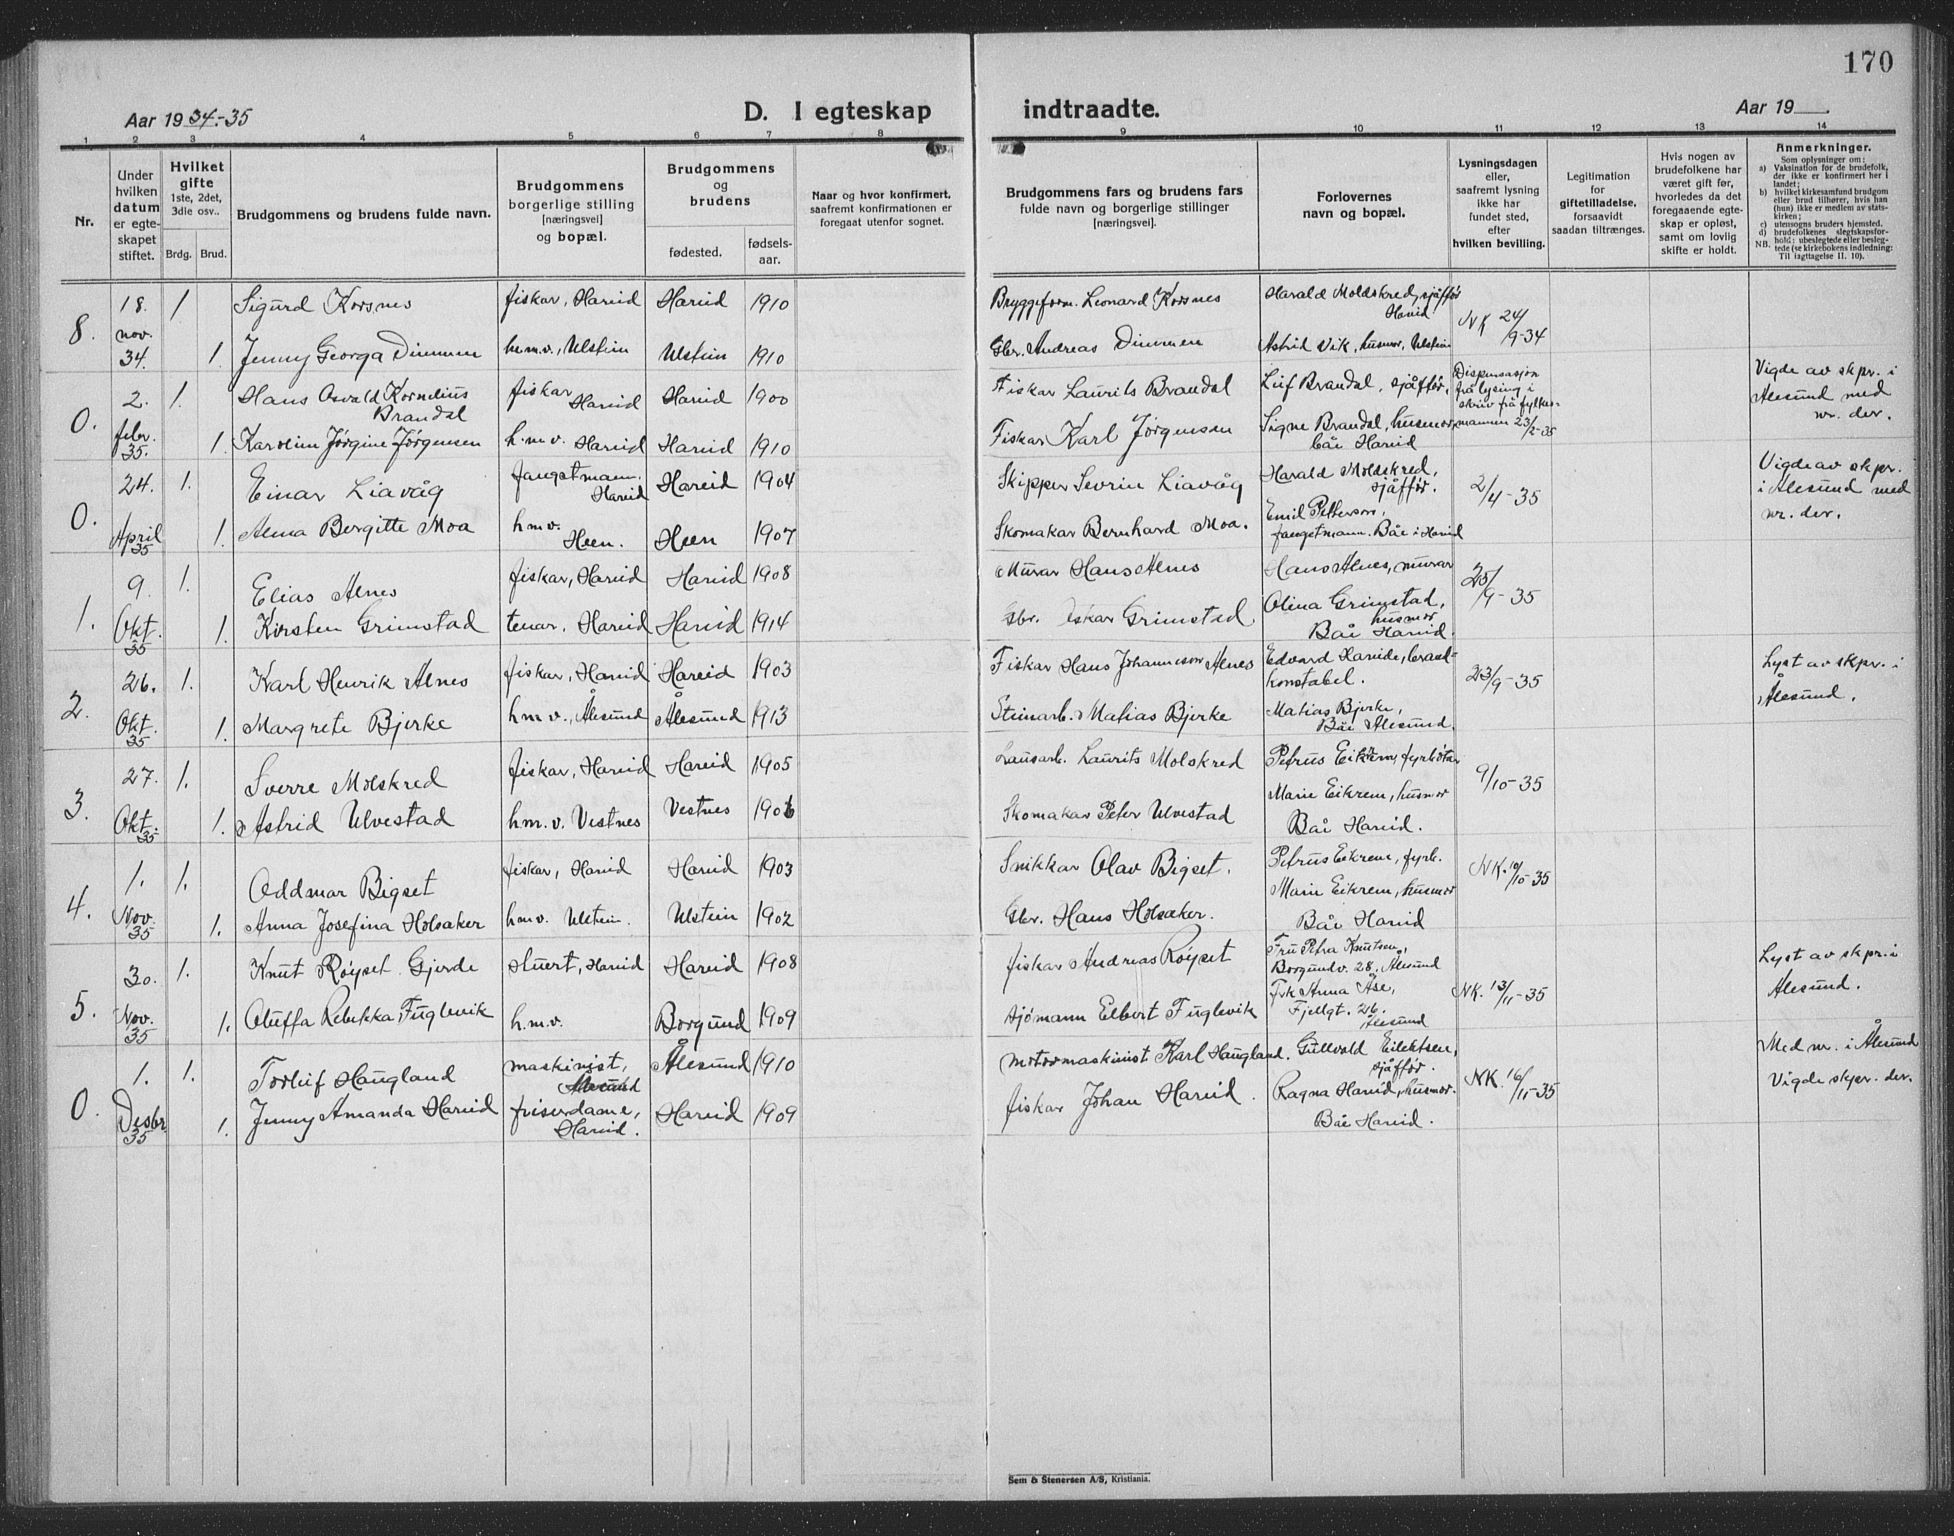 170
Aar 1934.-35
D. I egteskap indtraadte.
Aar 19
1 2 3 4 5 6 7 8 9 10 11 12 13 14
Nr.
Under hvilken datum er egteskapet stiftet.
Hvilket gifte
1ste, 2det, 3die osv..
Brdg. Brud.
Brudgommens og brudens fulde navn.
Brudgommens borgerlige stilling [næringsvei] og bopæl.
Brudgommens og brudens
fødested.
fødselsaar.
Naar og hvor konfirmert, saafremt konfirmationen er foregaat utenfor sognet.
Brudgommens fars og brudens fars fulde navn og borgerlige stillinger [næringsvei].
Forlovernes navn og bopæl.
Lysningsdagen eller, saafremt lysning ikke har fundet sted, efter hvilken bevilling.
Legitimation for giftetilladelse, forsaavidt saadan tiltrænges.
Hvis nogen av brudefolkene har været gift før, hvorledes da det foregaaende egteskap er opløst, samt om lovlig skifte er holdt.
Anmerkninger.
Som oplysninger om:
a) Vaksination for de brudefolk, der ikke er konfirmert her i landet;
b) hvilket kirkesamfund brudgom eller brud tilhører, hvis han (hun) ikke er medlem av statskirken;
c) utensogns bruders hjemsted.
d) brudefolkenes slegtskapsforhold: ubeslegtede eller beslegtede (se kirkebokens indledning:
NB. Til iagttagelse II. 10).
8. 18. nov. 34. 1. Sigurd Korsnes fiskar, Hareid Hareid 1910 Bryggeform. Leonard Korsnes Harald Moldskred, sjåffør Hareid NK 24/9-34
1. Jenny Georga Dimmen h.m.v., Ulstein Ulstein 1910 Gbr. Andreas Dimmen Astrid Vik, husmor, Ulstein
0. 2. febr. 35. 1. Hans Osvald Kornelius Brandal fiskar Hareid Hareid 1900 Fiskar Laurits Brandal Leif Brandal, sjåffør, Dispensasjon frå lysing i skriv frå fylkesmannen 23/2-35 Vigde av skpr. i Ålesund med nr. der.
1. Karoline Jørgine Jørgensen h.m.v. Hareid Hareid 1910 Fiskar Karl Jørgensen Signe Brandal, husmor, båe Hareid
0. 24. April 35 1. Einar Liavåg fangstmann. Hareid Hareid 1904 Skipper Severin Liavåg Harald Moldskred, sjåffør. 2/4-35 Vigde av skpr. i Ålesund med nr. der.
1. Alma Bergitte Moa h.m.v. Heen. Heen 1907 Skomakar Bernhard Moa. Emil Petterson, fangstmann. Båe i Hareid
1. 9. Okt. 35 1. Elias Alnes fiskar, Hareid Hareid 1908 Murar Hans Alnes Hans Alnes, murar 25/9-35
1. Kirsten Grimstad tenar, Hareid Hareid 1914 Gbr. Oskar Grimstad. Olina Grimstad, husmor Båe Hareid.
2. 26. Okt. 35 1. Karl Henrik Alnes fiskar, Hareid Hareid 1903 Fiskar Hans Johannesen Alnes Edvard Hareide, brandkonstabel. 23/9-35 Lyst av skpr. i Ålesund.
1. Margrete Bjerke h.m.v., Ålesund Ålesund 1913 Steinarb. Matias Bjerke Matias Bjerke, Båe Ålesund.
3. 27. Okt. 35. 1. Sverre Molskred fiskar, Hareid Hareid 1905 Lausarb. Laurits Molskred Petrus Eikrem, fyrbøtar 9/10-35
1. Astrid Ulvestad h.m.v. Vestnes Vestnes 1906 Skomakar Peter Ulvestad Marie Eikrem, husmor Båe Hareid.
4. 1. Nov. 35 1. Oddmar Bigset fiskar, Hareid Hareid 1903 Snikkar Olav Bigset. Petrus Eikrem, fyrb. NK. 10/10-35
1. Anna Josefina Holsaker h.m.v. Ulstein. Ulstein 1902 Gbr. Hans Holsaker. Marie Eikrem, husmor Båe Hareid
5. 30. Nov. 35 1. Knut Røyset Gjerde stuert, Hareid Hareid 1908 fiskar Andreas Røyset Fru Petra Knutsen, Borgundv. 28, Ålesund NK. 13/11-35 Lyst av skpr. i Ålesund.
1. Oluffa Rebekka Fuglevik h.m.v. Borgund 1909 sjømann Elbert Fuglevik Frk Anna Åse, Fjellgt. 26. Ålesund
0. 1. Desbr. 35 1. Torleif Haugland maskinist, Ålesund Ålesund 1910 motormaskinist Karl Haugland. Gullvald Eilektsen, sjåffør. NK. 16/11-35 Med nr. i Ålesund Vigde skpr. der.
1. Jenny Amanda Hareid friserdame, Hareid. Hareid 1909 fiskar Johan Hareid. Ragna Hareid, husmor. Båe Hareid.
Sem & Stenersen A/S, Kristiania.